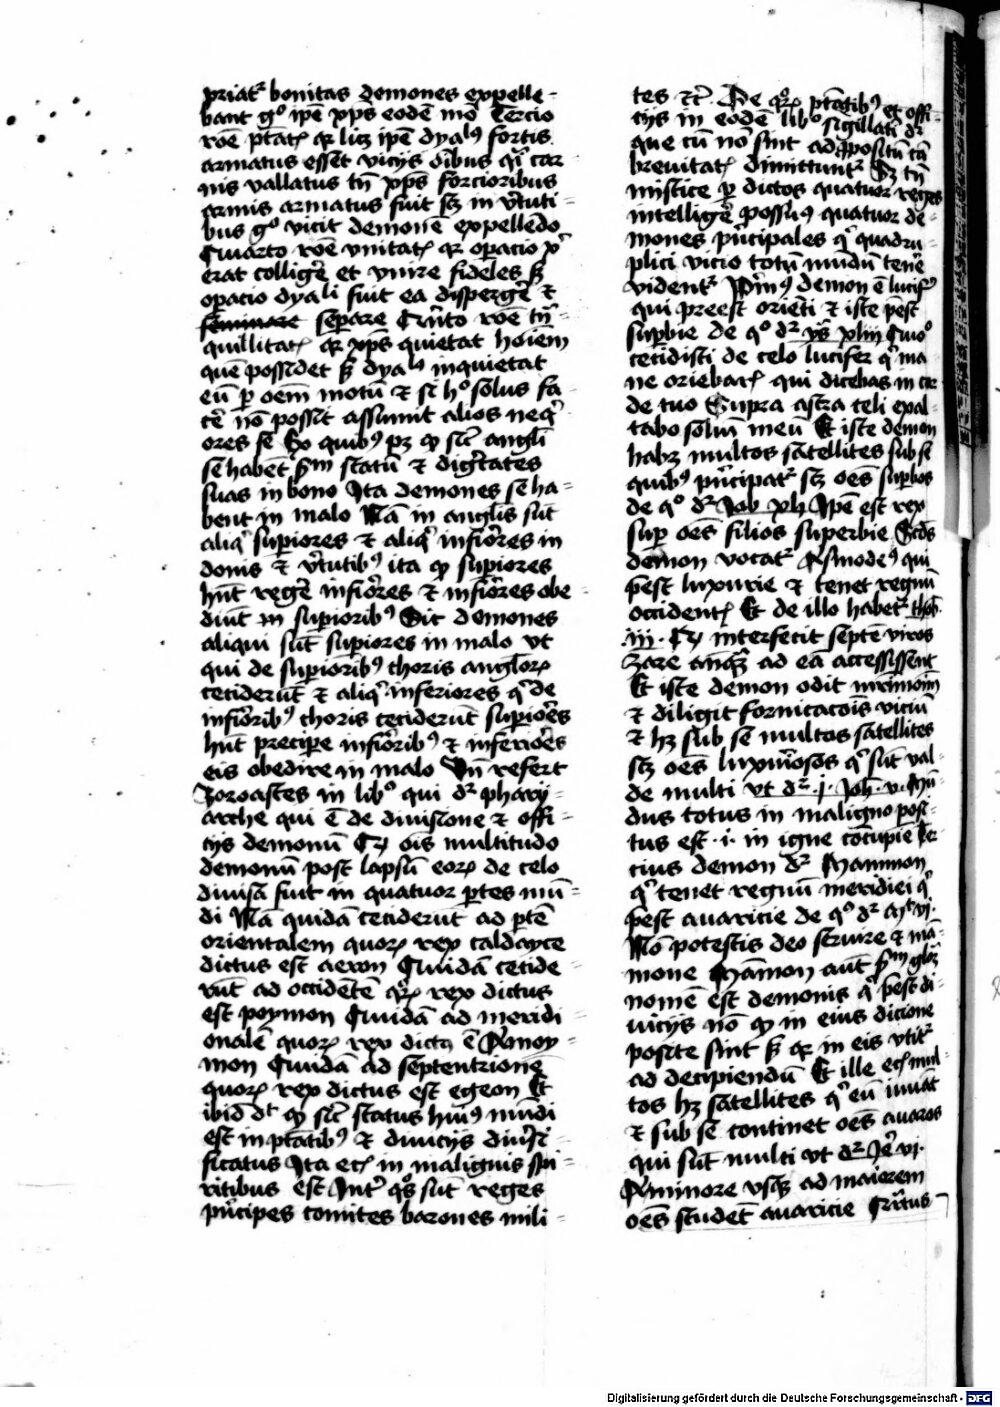 priatr bonitas demones expelle-
bant go ipe xps eode mo Tercio
roe ptatz qr licz ipe dyalus fortis
armatus esset vicijs oibus qi car
nis vallatus tn xps forcioribus
armis armatus fuit scz in vtuti-
bus go vicit demone expelledo
Quarto roe vnitatz qr opacio xi
erat colligere et vnire fideles sz
opacio dyali fuit ea dispergere et
seminare separe Qrinto roe tn-
quillitatz qr xps quietat hoiem
que possidet sz dyalus inquietat
eu p oem motu et si ho solus fa
cere no possit assumit alios neqi
ores se Ex quibus pz qp sicut angli
se habent sm statu et dignitates
suas in bono Ita demones se ha-
bent in malo Nam in anglis sut
aliqi supiores et aliqi infiores in
donis et vtutibus ita qp supiores
hnt regere infiores et infiores obe
diunt in supioribus Sic demones
aliqui sut supiores in malo vt
qui de supioribus choris anglorz
ceciderut et aliqi inferiores qi de
infioribus choris ceciderut superiores
hnt precipere infioribus et inferiores
eis obedire in malo Vn refert
Zoroastes in libo qui dr phary-
arche qui e de diuisione et offi-
cijs demonu Qz ois multitudo
demonu post lapsu eorz de celo
diuisa fuit in quatuor ptes mu-
di Nam quida ceciderut ad pte
orientalem quorz rex caldayce
dictus est aeron Quida cecide
rut ad occidete qrz rex dictus
est poymon Quida ad meridi
onale quorz rex dictus e Amoy-
mon Quida ad septentrione
quorz rex dictus est egeon Et
ibid dt qp sicut status huius mudi
est in ptatibus et diuicijs diuersi-
ficatus Ita ecz in malignis spi-
ritibus est Inter qos sut reges
principes comites barones mili-
tes etc De qrz ptatibus et offi-
cijs in eode libo sigillati dr
que cu no sint ad ppositu ca
breuitatz dimittuntr Sz tn
mistice p dictos quatuor reges
intelligere possumus quatuor de-
mones principales qi quadru-
plici vicio totu mudu tenere
videntr Primus demon e lucifer
qui preest orieti et iste pest
superbie de qo dr ys xiiij Quo
cecidisti de celo lucifer qi ma
ne oriebarz qui dicebas in cor
de tuo Supra astra celi exal-
tabo soliu meu Et iste demon
habz multos satellites sub se
quibus principatr scz oes superbos
de qo dr Job xli Ipe est rex
super oes filios superbie Secus
demon vocatr Asmodeus qui
pest luxurie et tenet regnu
occidentz Et de illo habetr thob
.iij. Qz interfecit septe viros
Zare anqz ad ea accessissent
Et iste demon odit mrimoniu
et diligit fornicacois viciu
et hz sub se multos satellites
scz oes luxuriosos qi sut val-
de multi vt dr .j. Joh. v. Mu-
dus totus in maligno posi-
tus est .i. in igne concupie Ter
cius demon dr Mammon
qi tenet regnu meridiei qi
pest auaricie de qo dr Mt vi.
No potestis deo seruire et ma-
mone Mammon aut sm glosz
nomen est demonis qi pest di-
uicijs no qp in eius dicione
posite sint sz qr in eis vtitr
ad decipiendu Et ille ecz mul
tos hz satellites qi eu iuuat
et sub se continet oes auaros
qui sut multi vt dr Jer vj.
A minore vsqz ad maiorem
oes studet auaricie Qrtus
Digitalisierung gefördert durch die Deutsche Forschungsgemeinschaft - DFG